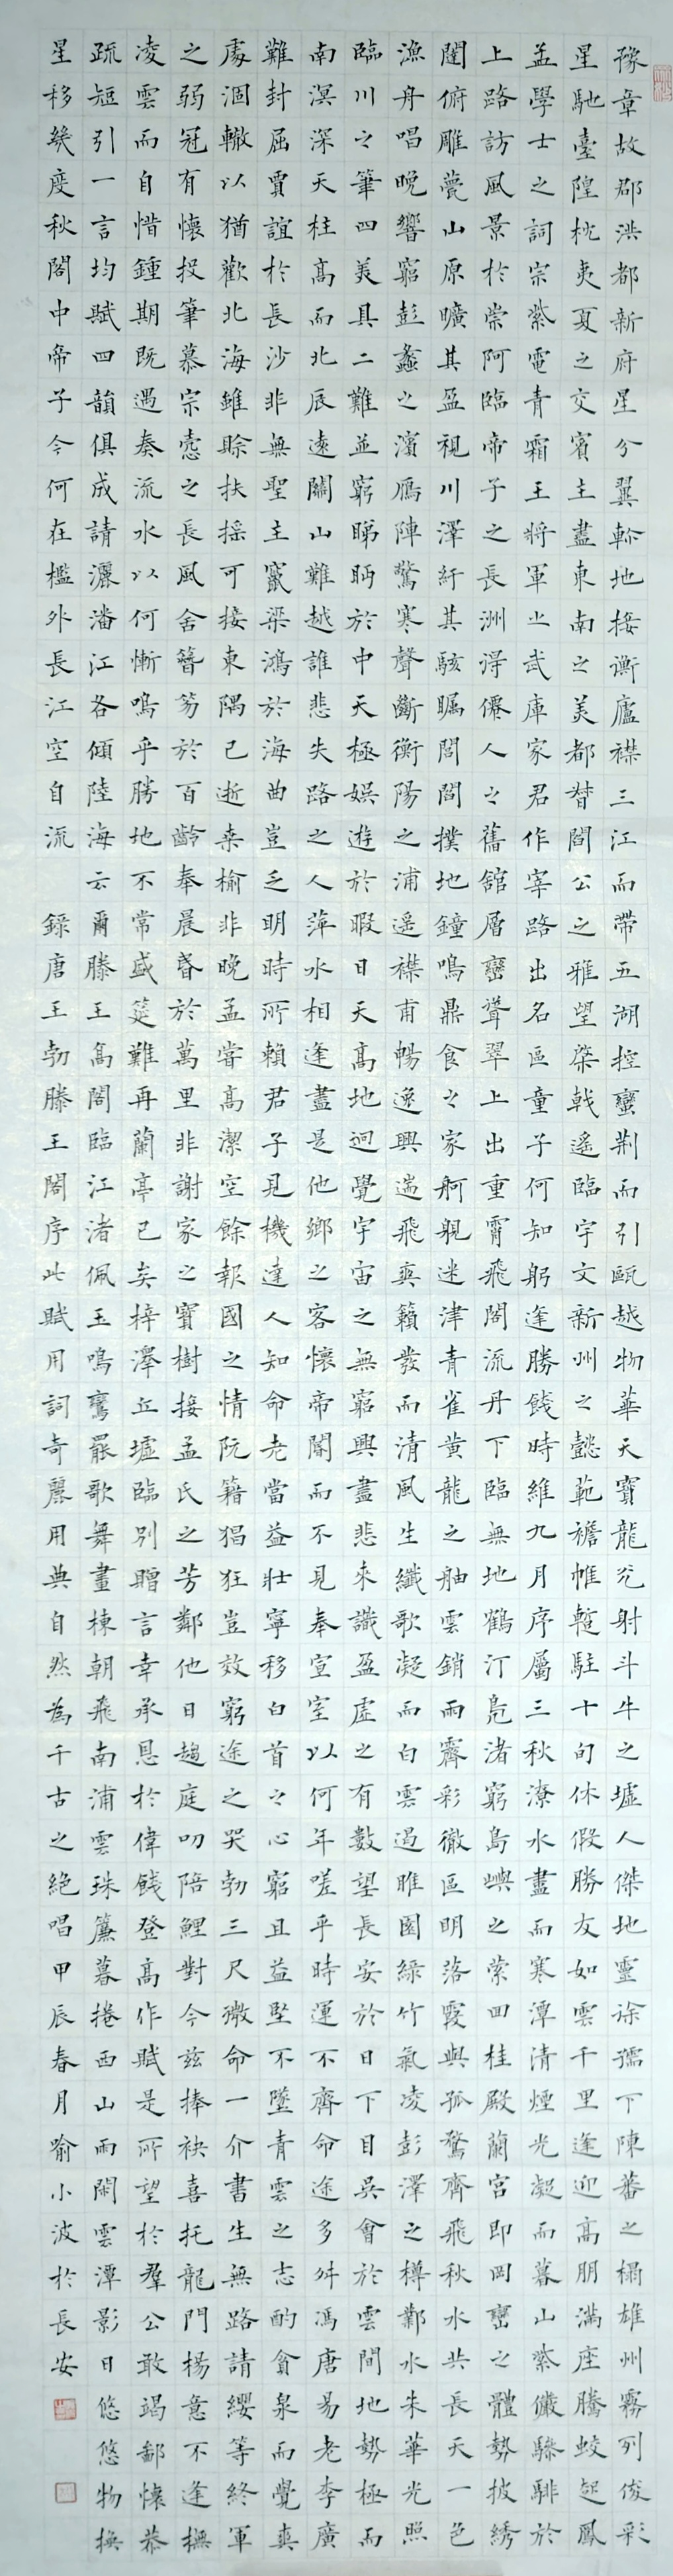 豫章故郡洪都新府星分翼軫地接衡廬襟三江而帶五湖控蠻荊而引甌越物華天寶龍光射斗牛之墟人傑地靈徐孺下陳蕃之榻雄州霧列俊彩
星馳臺隍枕夷夏之交賓主盡東南之美都督閻公之雅望棨戟遙臨宇文新州之懿範襜帷暫駐十旬休假勝友如雲千里逢迎高朋滿座騰蛟起鳳
孟學士之詞宗紫電青霜王將軍之武庫家君作宰路出名區童子何知躬逢勝餞時維九月序屬三秋潦水盡而寒潭清煙光凝而暮山紫儼驂騑於
上路訪風景於崇阿臨帝子之長洲得僊人之舊館層巒聳翠上出重霄飛閣流丹下臨無地鶴汀鳧渚窮島嶼之縈回桂殿蘭宮即岡巒之體勢披綉
闥俯雕甍山原曠其盈視川澤紆其駭矚閭閻撲地鐘鳴鼎食之家舸舰迷津青雀黃龍之舳雲銷雨霽彩徹區明落霞與孤鶩齊飛秋水共長天一色
漁舟唱晚響窮彭蠡之濱雁陣驚寒聲斷衡陽之浦遙襟甫暢逸興遄飛爽籟發而清風生纖歌凝而白雲遏睢園綠竹氣凌彭澤之樽鄴水朱華光照
臨川之筆四美具二難並窮睇眄於中天極娛遊於暇日天高地迥覺宇宙之無窮興盡悲來識盈虛之有數望長安於日下目吳會於雲間地勢極而
南溟深天柱高而北辰遠關山難越誰悲失路之人萍水相逢盡是他鄉之客懷帝閽而不見奉宣室以何年嗟乎時運不齊命途多舛馮唐易老李廣
難封屈賈誼於長沙非無聖主竄梁鴻於海曲豈乏明時所賴君子見機達人知命老當益壯寧移白首之心窮且益堅不墜青雲之志酌貪泉而覺爽
處涸轍以猶歡北海雖賒扶搖可接東隅已逝桑榆非晚孟嘗高潔空餘報國之情阮籍猖狂豈效窮途之哭勃三尺微命一介書生無路請纓等終軍
之弱冠有懷投筆慕宗愨之長風舍簪笏於百齡奉晨昏於萬里非謝家之寶樹接孟氏之芳鄰他日趨庭叨陪鯉對今茲捧袂喜托龍門楊意不逢撫
凌雲而自惜鍾期既遇奏流水以何慚鳴乎勝地不常盛筵難再蘭亭已矣梓澤丘墟臨別贈言幸承恩於偉餞登高作賦是所望於羣公敢竭鄙懷恭
疏短引一言均賦四韻俱成請灑潘江各傾陸海云爾滕王高閣臨江渚佩玉鳴鸞罷歌舞畫棟朝飛南浦雲珠簾暮捲西山雨閑雲潭影日悠悠物換
星移幾度秋閣中帝子今何在檻外長江空自流 錄唐王勃滕王閣序此賦用詞奇麗用典自然為千古之絕唱甲辰春月喻小波於長安